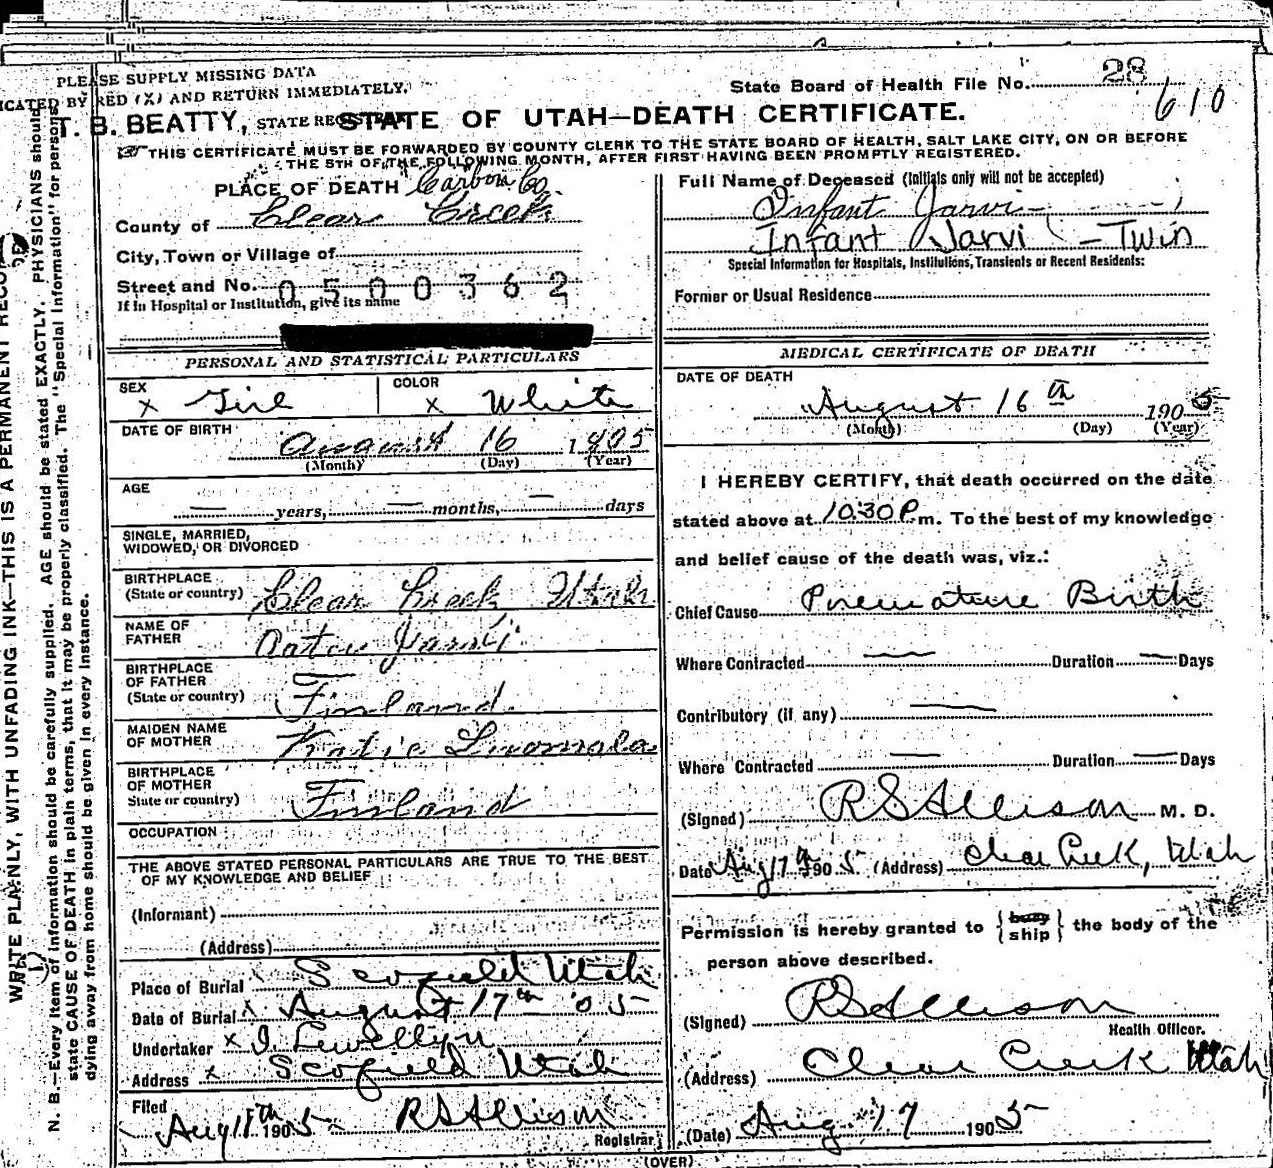 PLEASE SUPPLY MISSING DATA
ICATED BY RED (X) AND RETURN IMMEDIATELY.
T. B. BEATTY, STATE REGISTRAR
State Board of Health File No. 28
610
STATE OF UTAH—DEATH CERTIFICATE.
THIS CERTIFICATE MUST BE FORWARDED BY COUNTY CLERK TO THE STATE BOARD OF HEALTH, SALT LAKE CITY, ON OR BEFORE
THE 5TH OF THE FOLLOWING MONTH, AFTER FIRST HAVING BEEN PROMPTLY REGISTERED.
PLACE OF DEATH Carbon Co.
County of Clear Creek
City, Town or Village of
Street and No. 0500362
If in Hospital or Institution, give its name
PERSONAL AND STATISTICAL PARTICULARS
SEX x Girl COLOR x White
DATE OF BIRTH August 16 1905
(Month) (Day) (Year)
AGE — years, — months, — days
SINGLE, MARRIED,
WIDOWED, OR DIVORCED
BIRTHPLACE
(State or country) Clear Creek Utah
NAME OF
FATHER Jarvi
BIRTHPLACE
OF FATHER
(State or country) Finland.
MAIDEN NAME
OF MOTHER Katie Luomala
BIRTHPLACE
OF MOTHER
State or country) Finland
OCCUPATION
THE ABOVE STATED PERSONAL PARTICULARS ARE TRUE TO THE BEST
OF MY KNOWLEDGE AND BELIEF
(Informant)
(Address)
Place of Burial Scofield Utah
Date of Burial x August 17th '05
Undertaker x J. Lewellyn
Address x Scofield Utah
Filed
Aug 18th 1905 RS Allison
Registrar
Full Name of Deceased (Initials only will not be accepted)
Infant Jarvi
Infant Jarvi - Twin
Special Information for Hospitals, Institutions, Transients or Recent Residents:
Former or Usual Residence
MEDICAL CERTIFICATE OF DEATH
DATE OF DEATH
August 16th 1905
(Month) (Day) (Year)
I HEREBY CERTIFY, that death occurred on the date
stated above at 10:30 P.m. To the best of my knowledge
and belief cause of the death was, viz.:
Chief Cause Premature Birth
Where Contracted — Duration — Days
Contributory (if any) —
Where Contracted — Duration — Days
(Signed) RS Allison M. D.
Date Aug 17th 1905 (Address) Clear Creek, Utah
Permission is hereby granted to {bury ship} the body of the
person above described.
(Signed) RS Allison
Health Officer.
(Address) Clear Creek Utah
(Date) Aug. 17 1905
(OVER)
WRITE PLAINLY, WITH UNFADING INK—THIS IS A PERMANENT RECO
N. B.—Every item of information should be carefully supplied. AGE should be stated EXACTLY. PHYSICIANS should
state CAUSE OF DEATH in plain terms, that it may be properly classified. The "Special Information" for persons
dying away from home should be given in every instance.